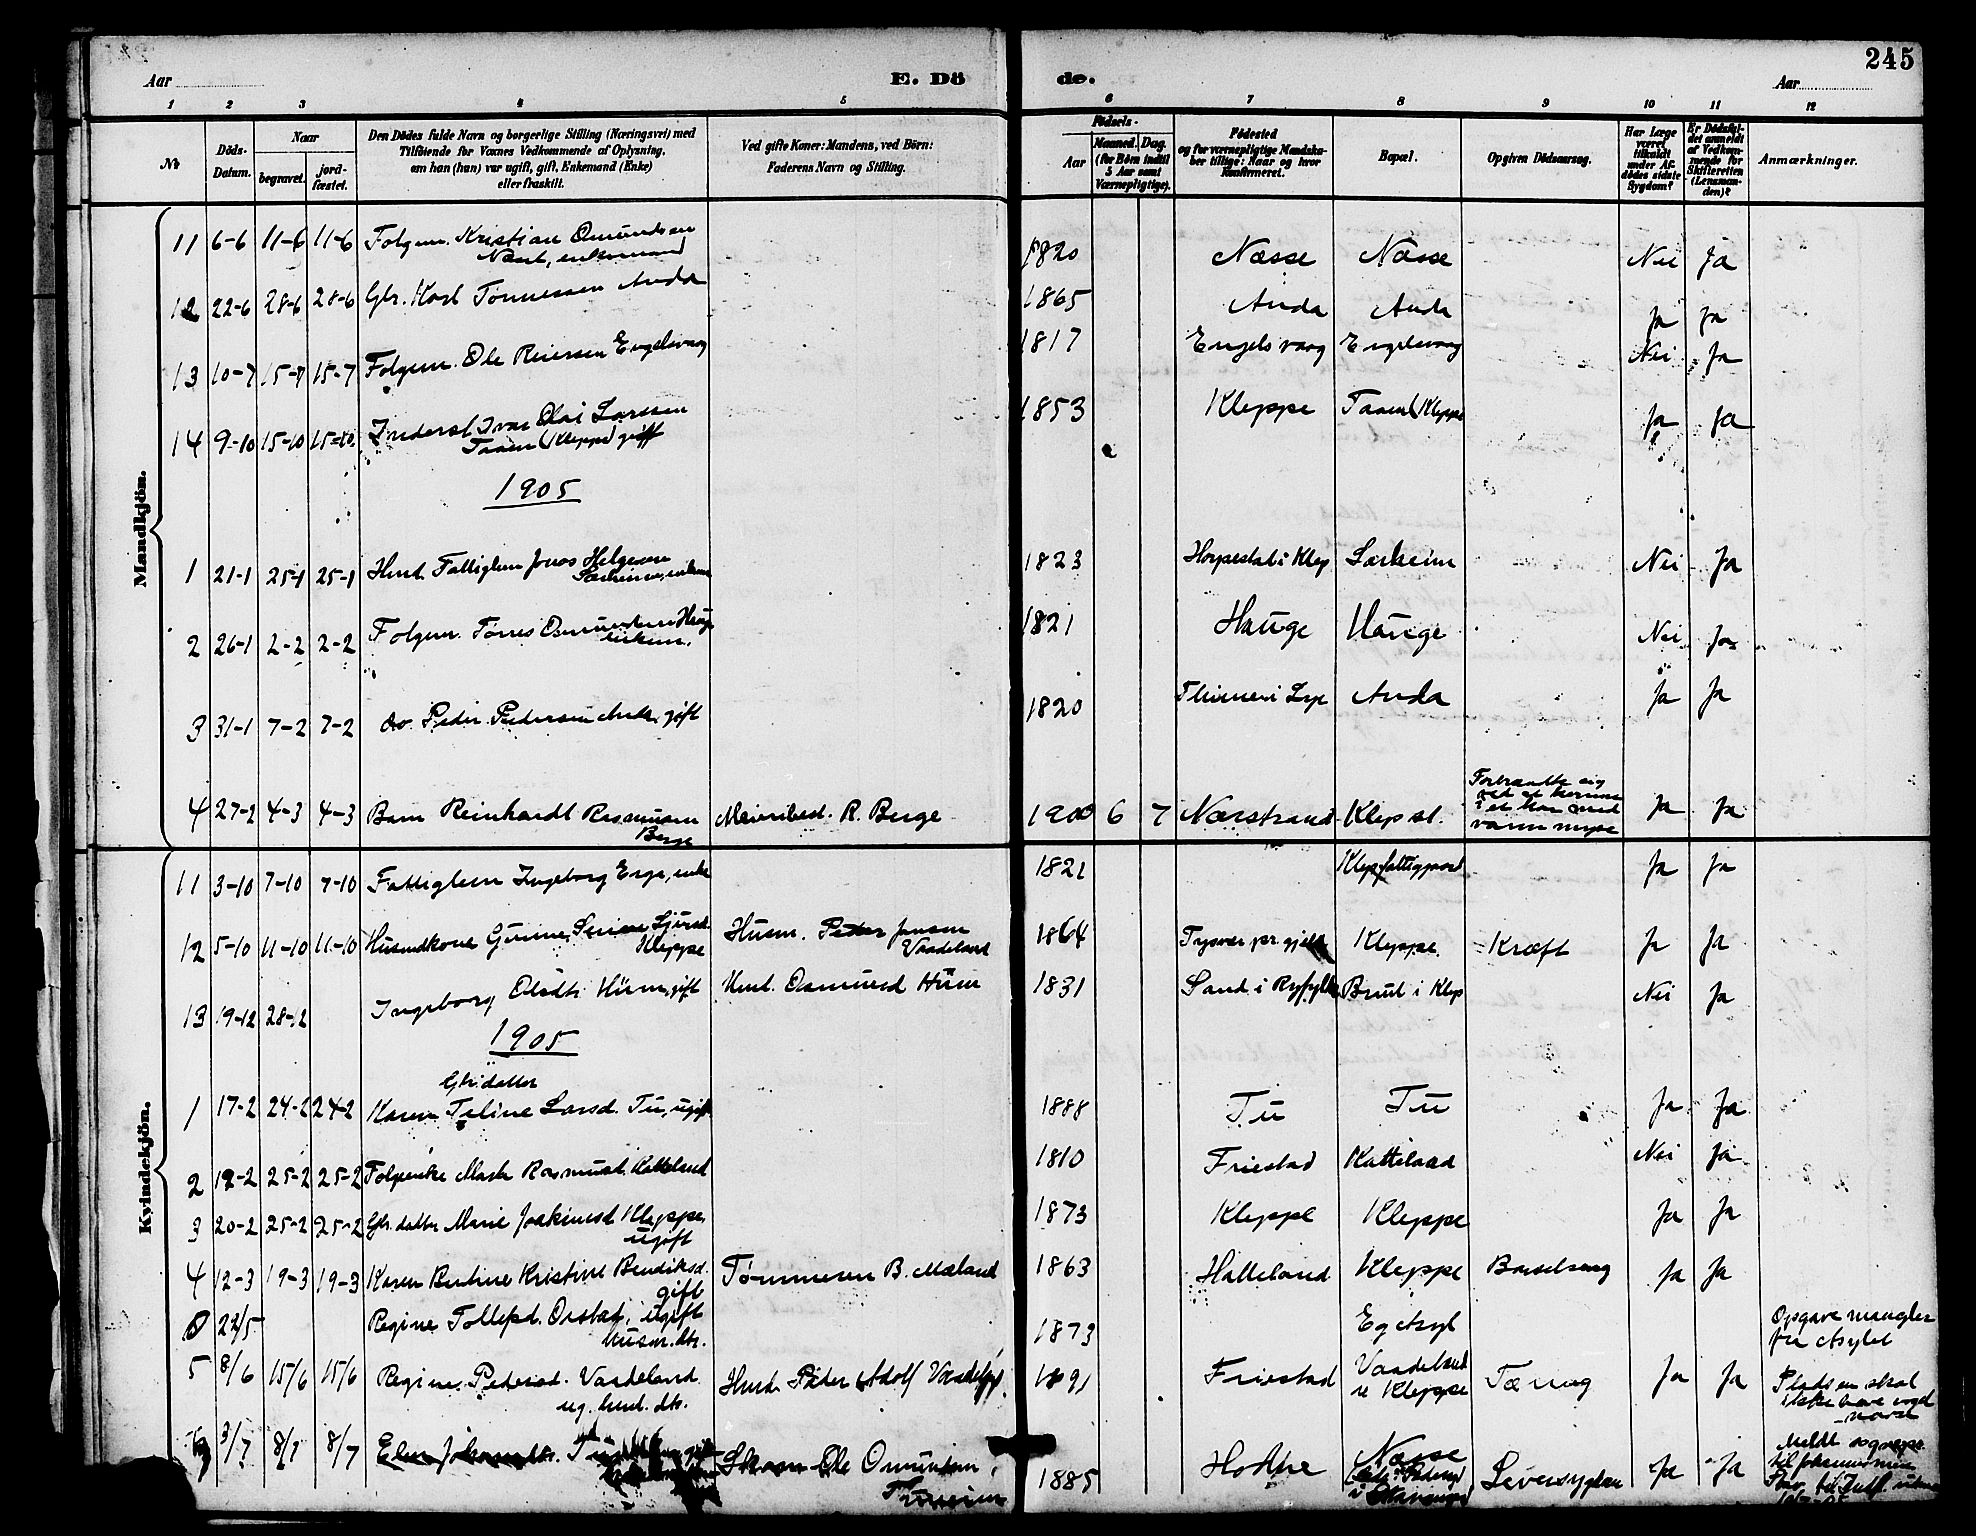 245
Aar
E. Dö
de.
Aar
1 2 3 4 5 6 7 8 9 10 11 12
No
Döds-Datum.
Naar
begravet.
jord-fæstet.
Den Dödes fulde Navn og borgerlige Stilling (Næringsvei) med
Tilföiende for Voxnes Vedkommende af Oplysning,
om han (hun) var ugift, gift, Enkemand (Enke)
eller fraskilt.
Ved gifte Koner: Mandens, ved Börn:
Faderens Navn og Stilling.
Födsels-
Aar
Maaned. Dag.
(for Börn indtil
5 Aar samt
Værnepligtige).
Födested
og for værnepligtige Mandska-
ber tillige: Naar og hvor
konfirmeret.
Bopæl.
Opgiven Dödsaarsag.
Har Læge
været
tilkaldt
under Af-
dödes sidste
Sygdom?
Er Dödsfal-
det anmeldt
af Vedkom-
mende for
Skifteretten
(Lensman-
den)?
Anmærkninger.
Mandkjön.
11 6-6 11-6 11-6 Folgem. Kristian Osmundsen 1820 Næsse Næsse Nei Ja
enkemand
12 22-6 28-6 28-6 Gbr. Karl Tønnessen Anda 1865 Anda Anda Ja Ja
13 10-7 15-7 15-7 Folgem. Ole Reiersen Engelsvaag 1817 Engelsvaag Engelsvaag Nei Ja
14 9-10 15-10 15-10 Inderst Ivar Olai Larssen 1853 Kleppe (Kleppe Ja Ja
(Kleppe) gift
1905
1 21-1 25-1 25-1 Fattiglem Jonas Helgesen 1823 Horpestad i Klep Særheim Nei Ja
2 26-1 2-2 2-2 Folgem. Tørres Osmundsen Hauge 1821 Hauge Hauge Nei Ja
enkem.
3 31-1 7-2 7-2 do. Peder Pedersen Anda, gift 1820 Thime i Lye Anda Ja Ja
4 27-2 4-3 4-3 Barn Reinhardt Rasmussen Meieribest. R. Berge 1900 6 7 Nærstrand Klep st. Ja Ja
Berge
Forbrændte sig
ved at komme
i et kar med
varm myse
Kvindekjön.
11 3-10 7-10 7-10 Fattiglem Ingeborg Erga, enke 1821 Klep fattiggaard Ja Ja
12 5-10 11-10 11-10 Husmdkone Gurine Serine Sjursd. Husm. Peder Jensen 1864 Tysvær pr. gjeld Kleppe Kræft Ja Ja
Kleppe Vaadeland
13 19-12 28-12 Ingeborg Olsdtr. gift Osmund 1831 Sand i Ryfylke i Klep Nei Ja
1905
Gbr. datter
1 17-2 24-2 24-2 Karen Teline Larsd. Tu, ugift 1888 Tu Tu Ja Ja
2 12-2 25-2 25-2 Folgenke Rasmusd. Katteland 1810 Friestad Katteland Nei Ja
3 20-2 25-2 25-2 Gbr. datter Marie Joakimsd. Kleppe, 1873 Kleppe Kleppe Ja Ja
ugift
4 12-3 19-3 19-3 Karen Bertine Kristine Bendiksd. Tønnesen B. Mæland 1863 Hatteland Kleppe Barselseng Ja Ja
gift
0 22/5 Regine Tollefsd. Orstad, ugift 1873 Eg Asyl Opgave mangler
husm. dtr. fra Asylet
5 8/6 15/6 15/6 Regine Pedersd. Vaadeland Husm. Peder Adolf Vaadeland 1891 Friestad Vaadeland Tæring Ja Ja
ug. husm. dtr. u Kleppe
Pladsen skal
ikke have
6 3/7 8/7 8/7 Elen Johannesdtr. Ole Osmundsen 1885 Hodne Næsse Leversygdom Ja Ja